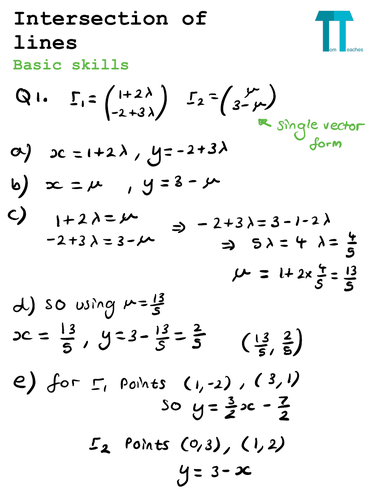 Intersection of
lines
Tom Teaches
Basic skills
Q1. r₁ = (1+2λ / -2+3λ) r₂ = (μ / 3-μ)
single vector
form
a) x = 1+2λ , y = -2+3λ
b) x = μ , y = 3 - μ
c) 1+2λ = μ ⇒ -2+3λ = 3-1-2λ
-2+3λ = 3-μ ⇒ 5λ = 4 λ = 4/5
μ = 1+2×4/5 = 13/5
d) so using μ = 13/5
x = 13/5 , y = 3 - 13/5 = 2/5 (13/5, 2/5)
e) for r₁ points (1,-2) , (3,1)
so y = 3/2x - 7/2
r₂ points (0,3) , (1,2)
y = 3 - x